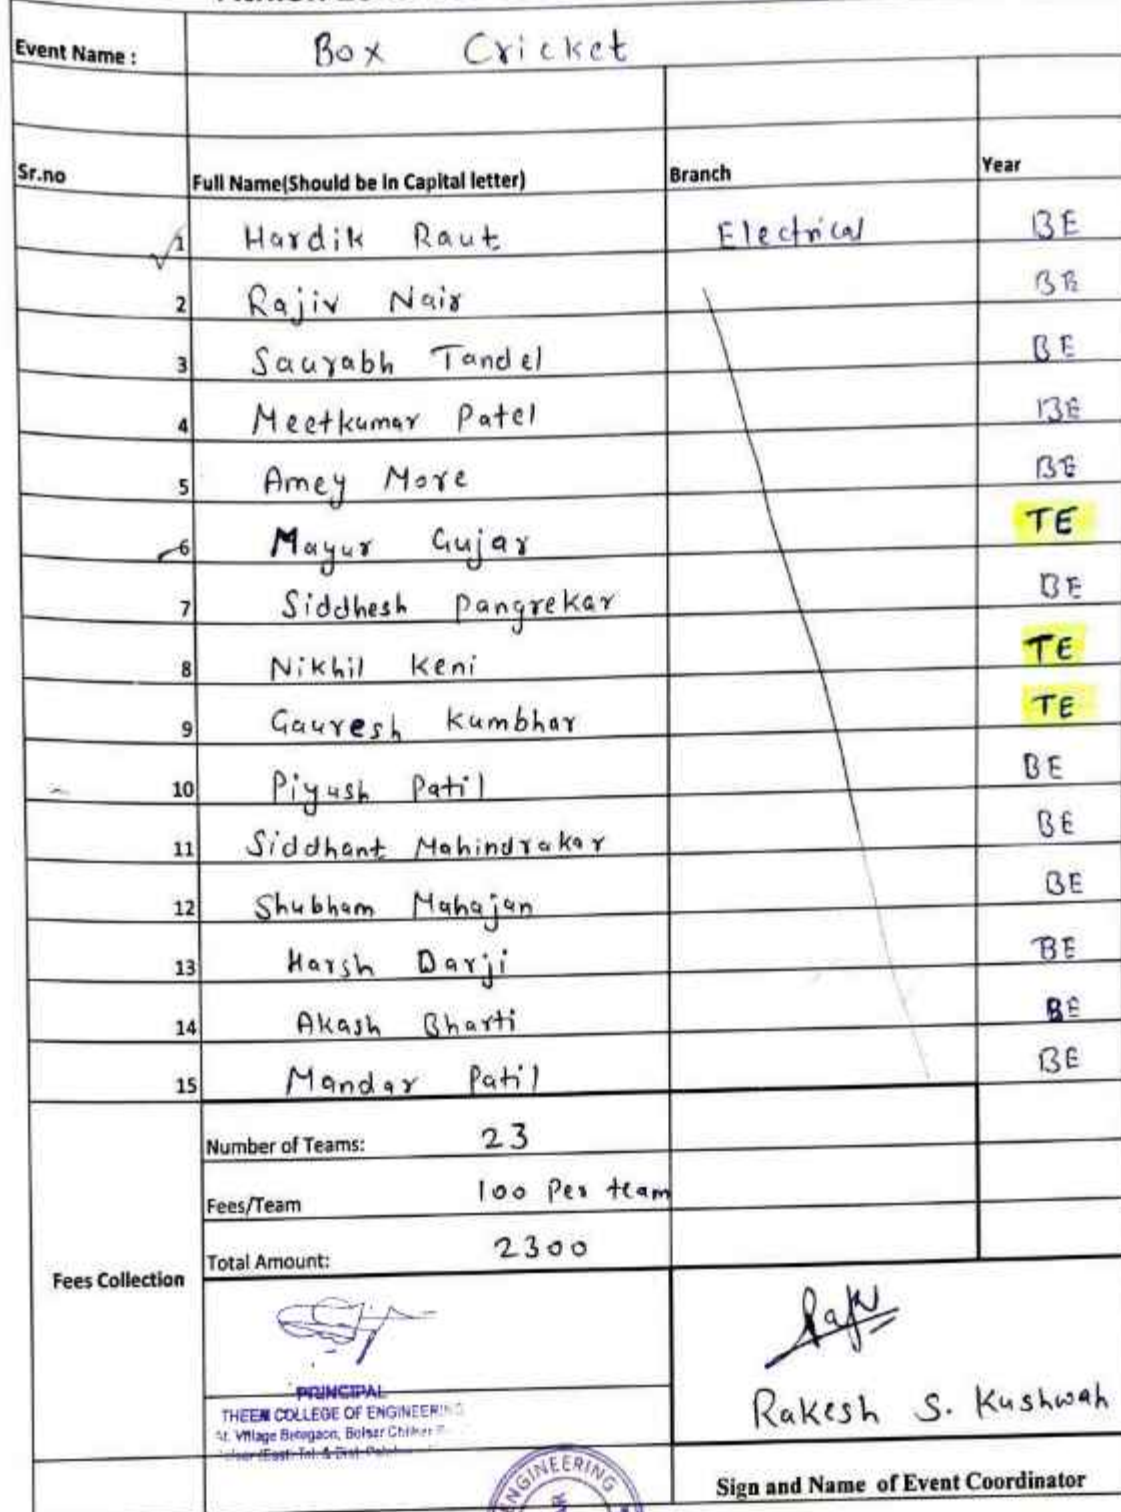 Event Name : Box Cricket
Sr.no Full Name(Should be In Capital letter) Branch Year
1 Hardik Raut Electrical BE
2 Rajiv Nair BE
3 Saurabh Tandel BE
4 Meetkumar Patel BE
5 Amey More BE
6 Mayur Gujar TE
7 Siddhesh Pangrekar BE
8 Nikhil Keni TE
9 Gauresh Kumbhar TE
10 Piyush Patil BE
11 Siddhant Mahindrakar BE
12 Shubham Mahajan BE
13 Harsh Darji BE
14 Akash Bharti BE
15 Mandar Patil BE
Number of Teams: 23
Fees/Team 100 Per team
Total Amount: 2300
Fees Collection
PRINCIPAL
THEEM COLLEGE OF ENGINEERING
At. Village Betegaon, Boisar
Rakesh S. Kushwah
ENGINEERING
Sign and Name of Event Coordinator